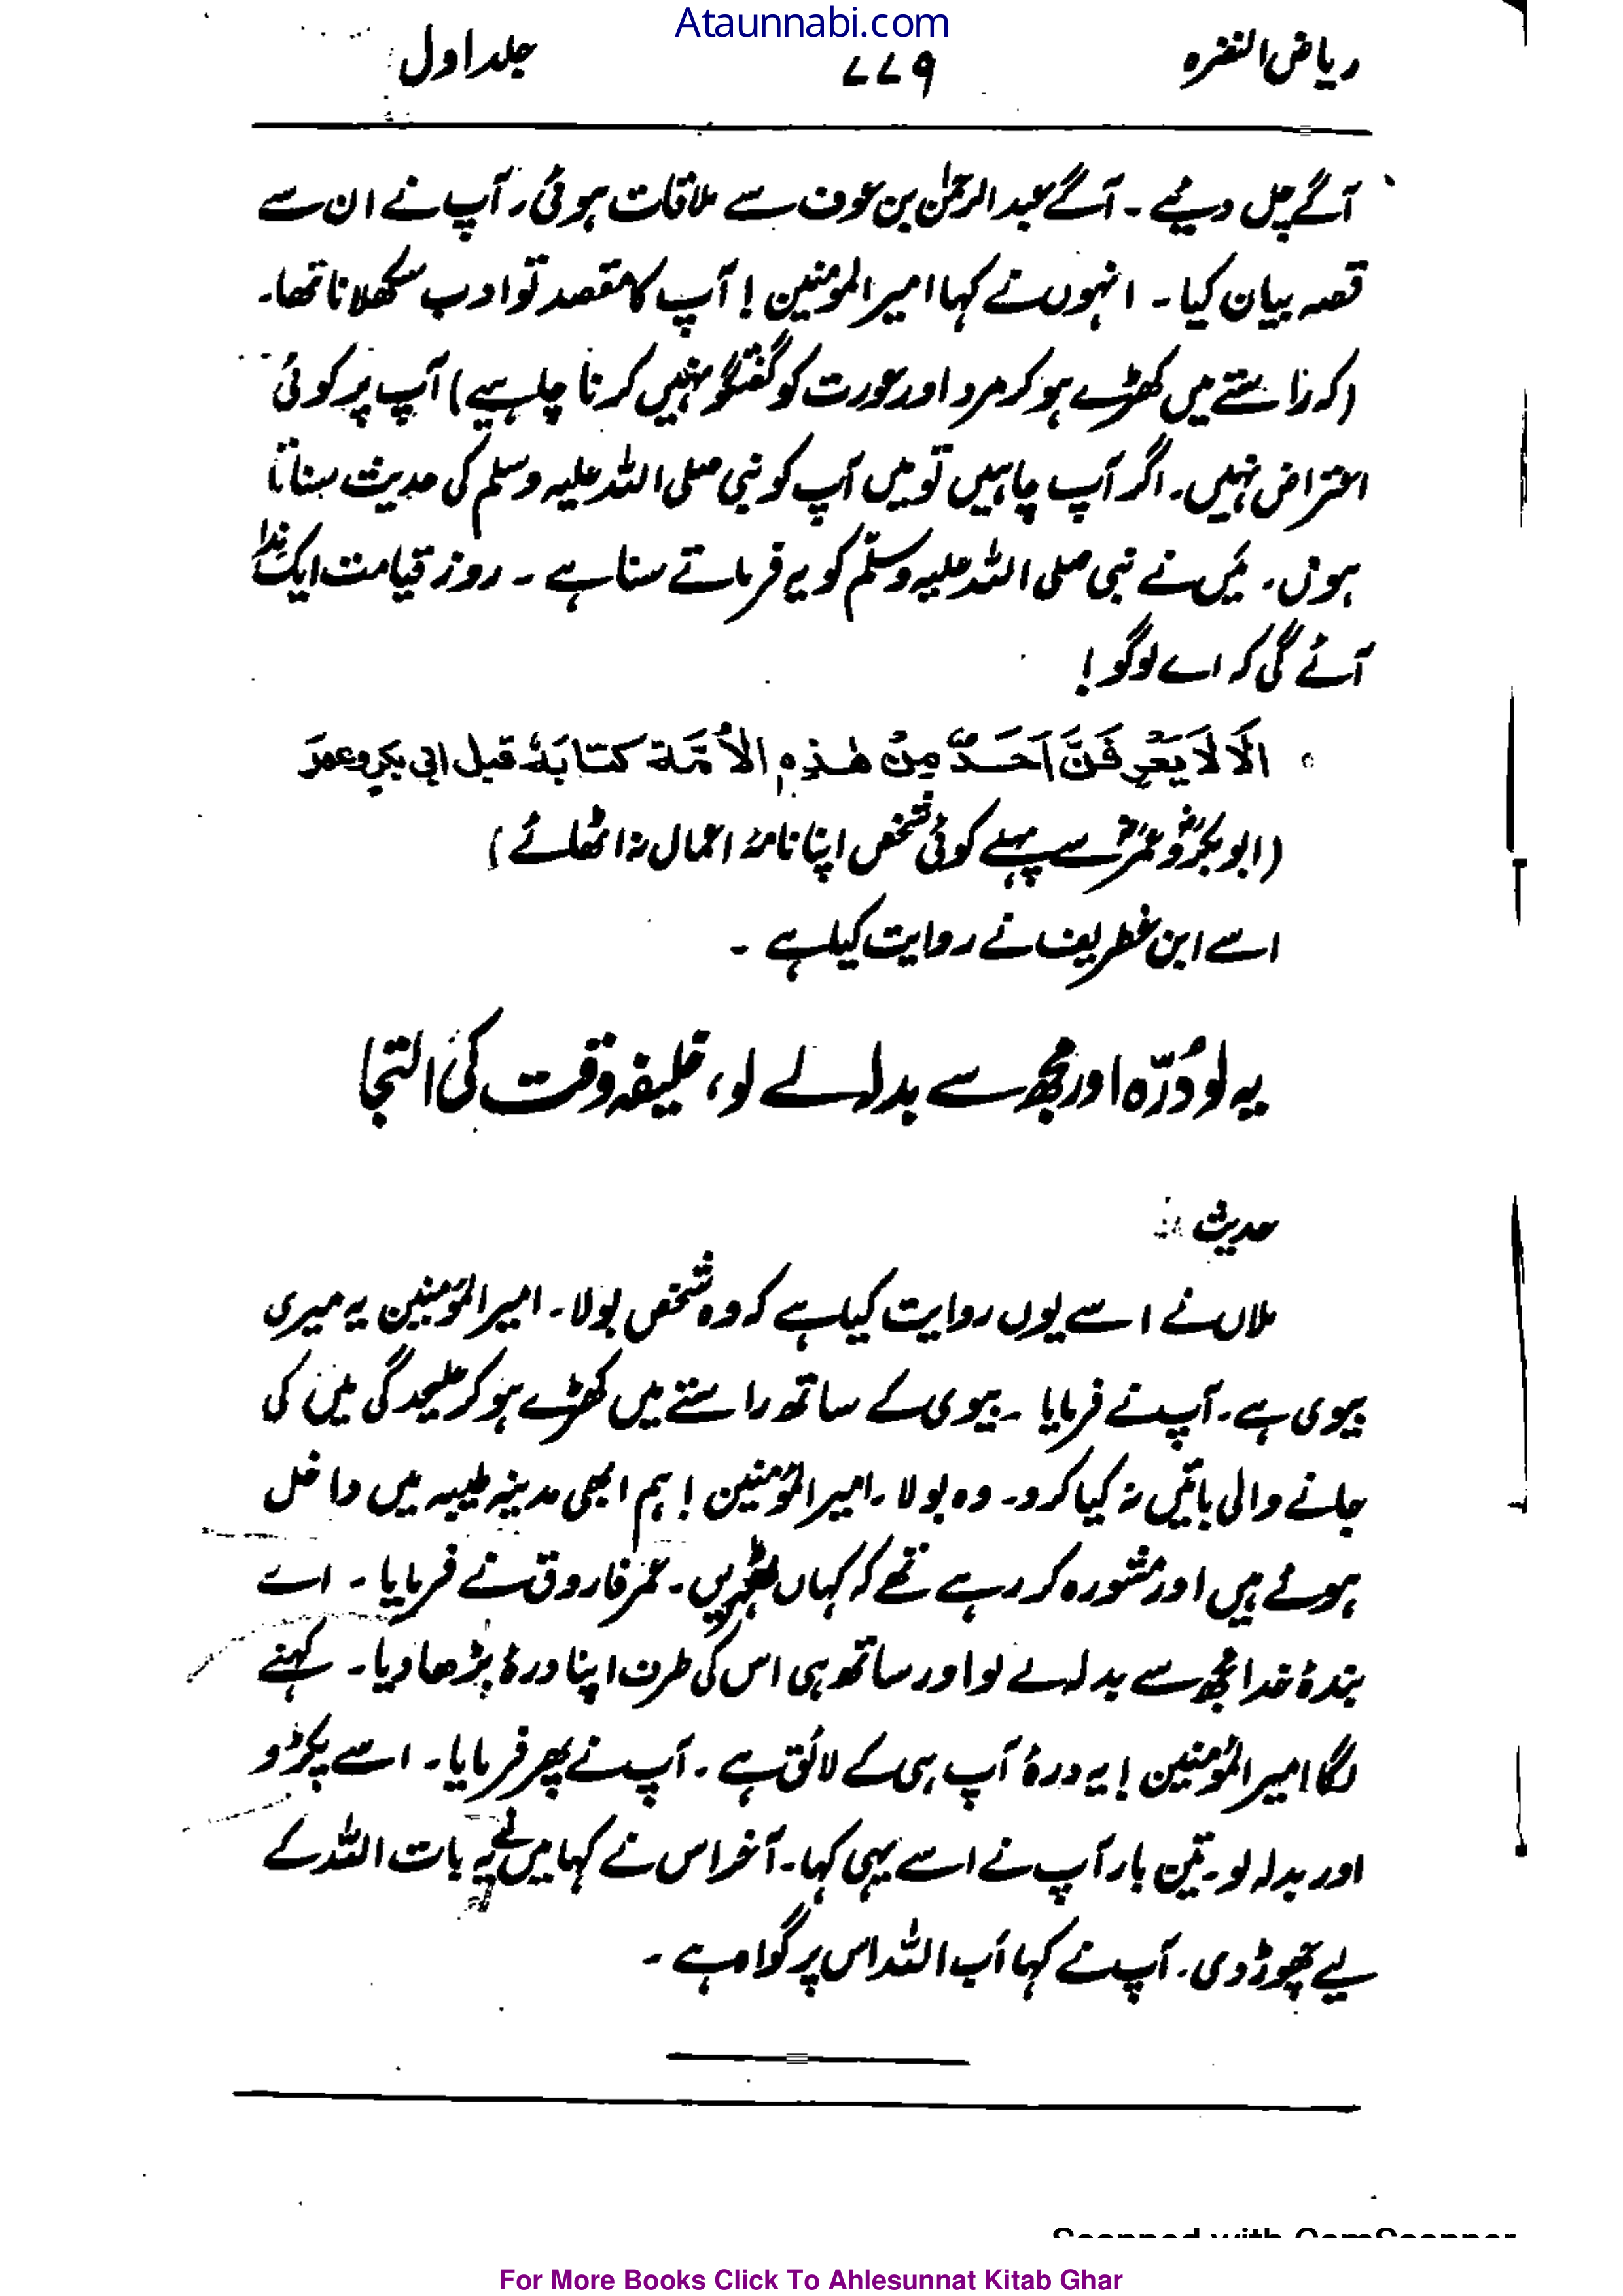 Ataunnabi.com
ریاض النضرہ ۷۷۹ جلد اول
آگے چل دیئے ۔ آگے عبد الرحمٰن بن عوف سے ملاقات ہوئی ، آپ نے ان سے
قصہ بیان کیا ۔ انہوں نے کہا امیر المومنین ! آپ کا مقصد تو ادب سکھلانا تھا ۔
(کہ راستے میں کھڑے ہو کر مرد اور عورت کو گفتگو نہیں کرنا چاہیے) آپ پر کوئی
اعتراض نہیں ۔ اگر آپ چاہیں تو میں آپ کو نبی صلی اللہ علیہ وسلم کی حدیث سناتا
ہوں ۔ میں نے نبی صلی اللہ علیہ وسلم کو یہ فرماتے سنا ہے ۔ روز قیامت ایک ندا
آئے گی کہ اے لوگو !
اَلَا لَا یَعْرِفَنَّ اَحَدٌ مِنْ ھٰذِہِ الْاُمَّۃِ کتابَہٗ قبل ابی بکر وعمرَ
(ابوبکرؓ و عمرؓ سے پہلے کوئی شخص اپنا نامۂ اعمال نہ اٹھائے)
اسے ابن غطریف نے روایت کیا ہے ۔
یہ لو دُرّہ اور مجھ سے بدلہ لے لو ، خلیفہ وقت کی التجا
حدیث
ملاں نے اسے یوں روایت کیا ہے کہ وہ شخص بولا ۔ امیر المؤمنین یہ میری
بیوی ہے ۔ آپ نے فرمایا ۔ بیوی کے ساتھ راستے میں کھڑے ہو کر علیحدگی میں کی
جانے والی باتیں نہ کیا کرو ۔ وہ بولا ۔ امیر المؤمنین ! ہم ابھی مدینہ طیبہ میں داخل
ہوئے ہیں اور مشورہ کر رہے تھے کہ کہاں ٹھہریں ۔ عمر فاروق نے فرمایا ۔ اے
بندۂ خدا مجھ سے بدلہ لے لو اور ساتھ ہی اس کی طرف اپنا درۂ بڑھا دیا ۔ کہنے
لگا امیر المؤمنین ! یہ درۂ آپ ہی کے لائق ہے ۔ آپ نے پھر فرمایا ۔ اسے پکڑو
اور بدلہ لو ۔ تین بار آپ نے اسے یہی کہا ۔ آخر اس نے کہا میں نے یہ بات اللہ کے
لیے چھوڑ دی ۔ آپ نے کہا اَب اللہ اس پر گواہ ہے ۔
Scanned with CamScanner
For More Books Click To Ahlesunnat Kitab Ghar